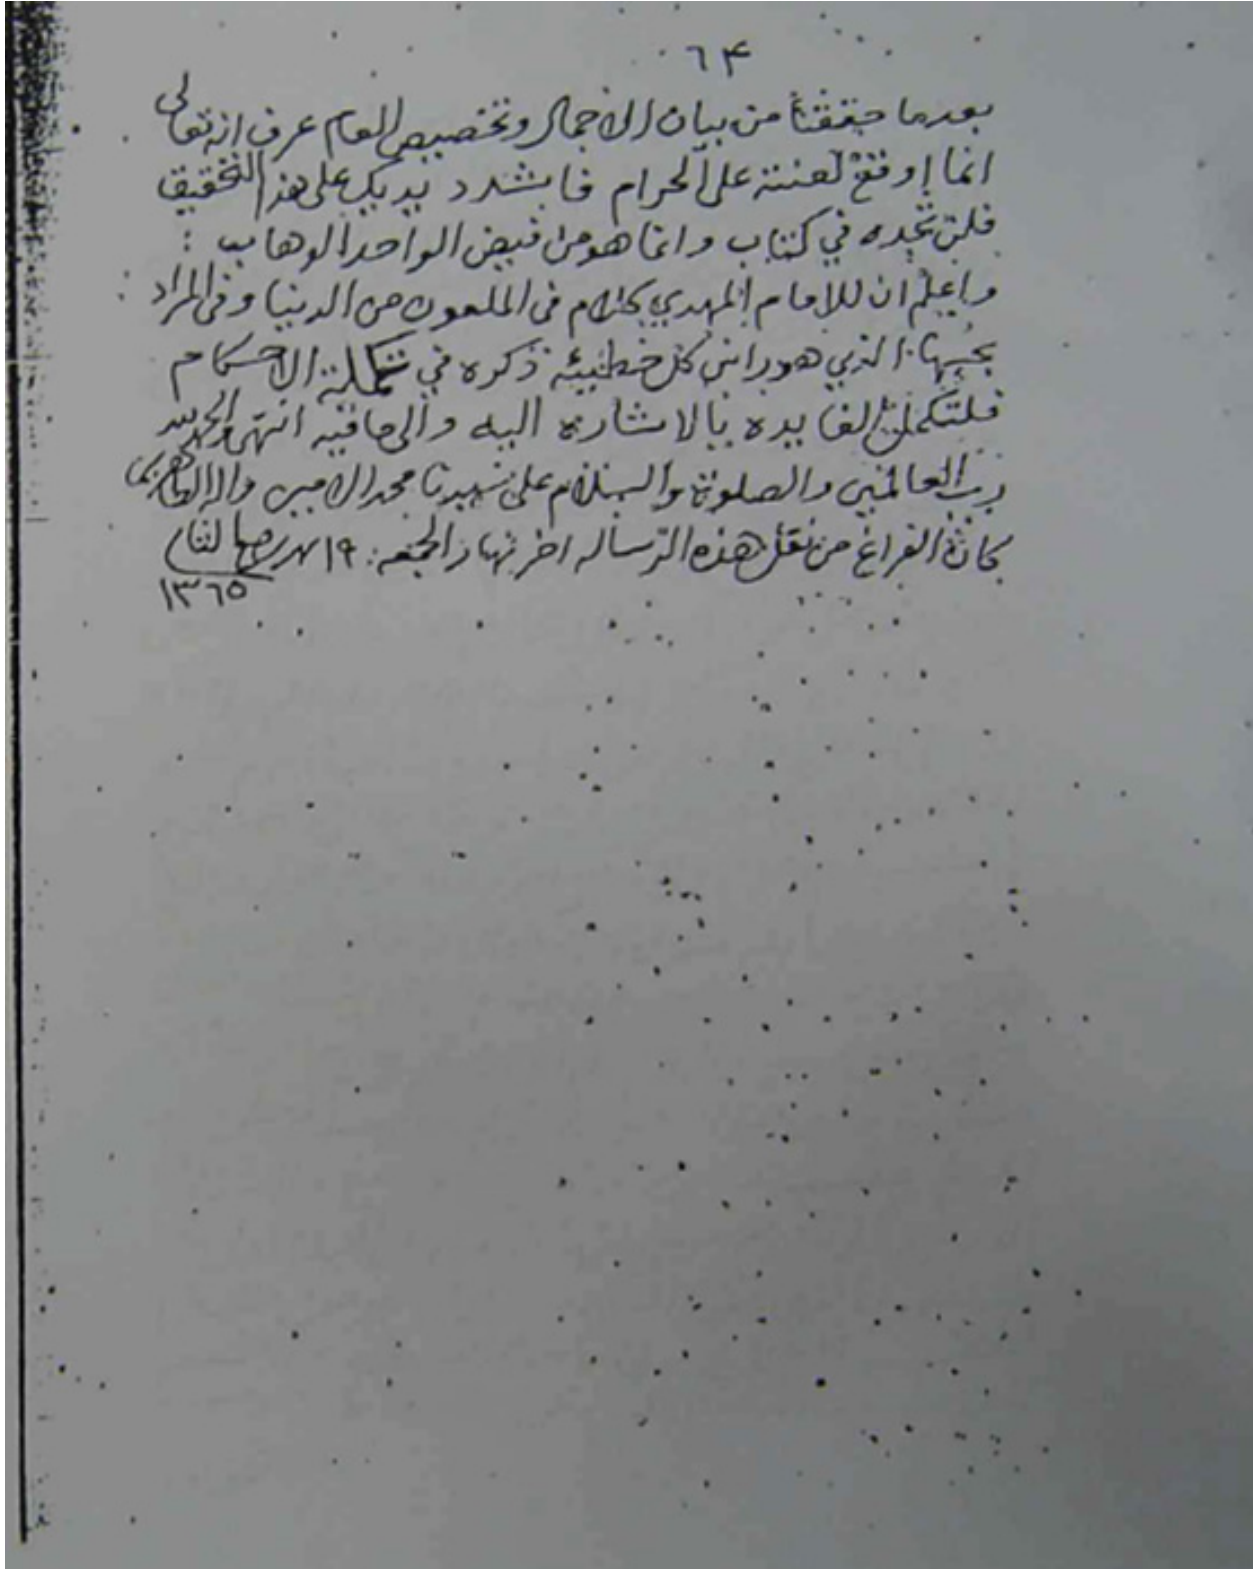 ٦٤
بعد ما حققنا من بيان الاجمال وتخصيص العام عرف انه تعالى
انما اوقع لعنته على الحرام فاشدد يديك على هذا التحقيق
فلن تجده في كتاب وانما هو من فيض الواحد الوهاب :
واعلم ان للامام المهدي كلام في الملعون من الدنيا وفي المراد
بحبها الذي هو راس كل خطيئه ذكره في تكملة الاحكام
فلتكمل الفايده بالاشاره اليه والى مافيه انتهى والحمد لله
رب العالمين والصلوة والسلام على سيدنا محمد الامين واله الطاهرين
كان الفراغ من نقل هذه الرساله اخر نهار الجمعه ١٩ ربيع الثاني
١٣٦٥